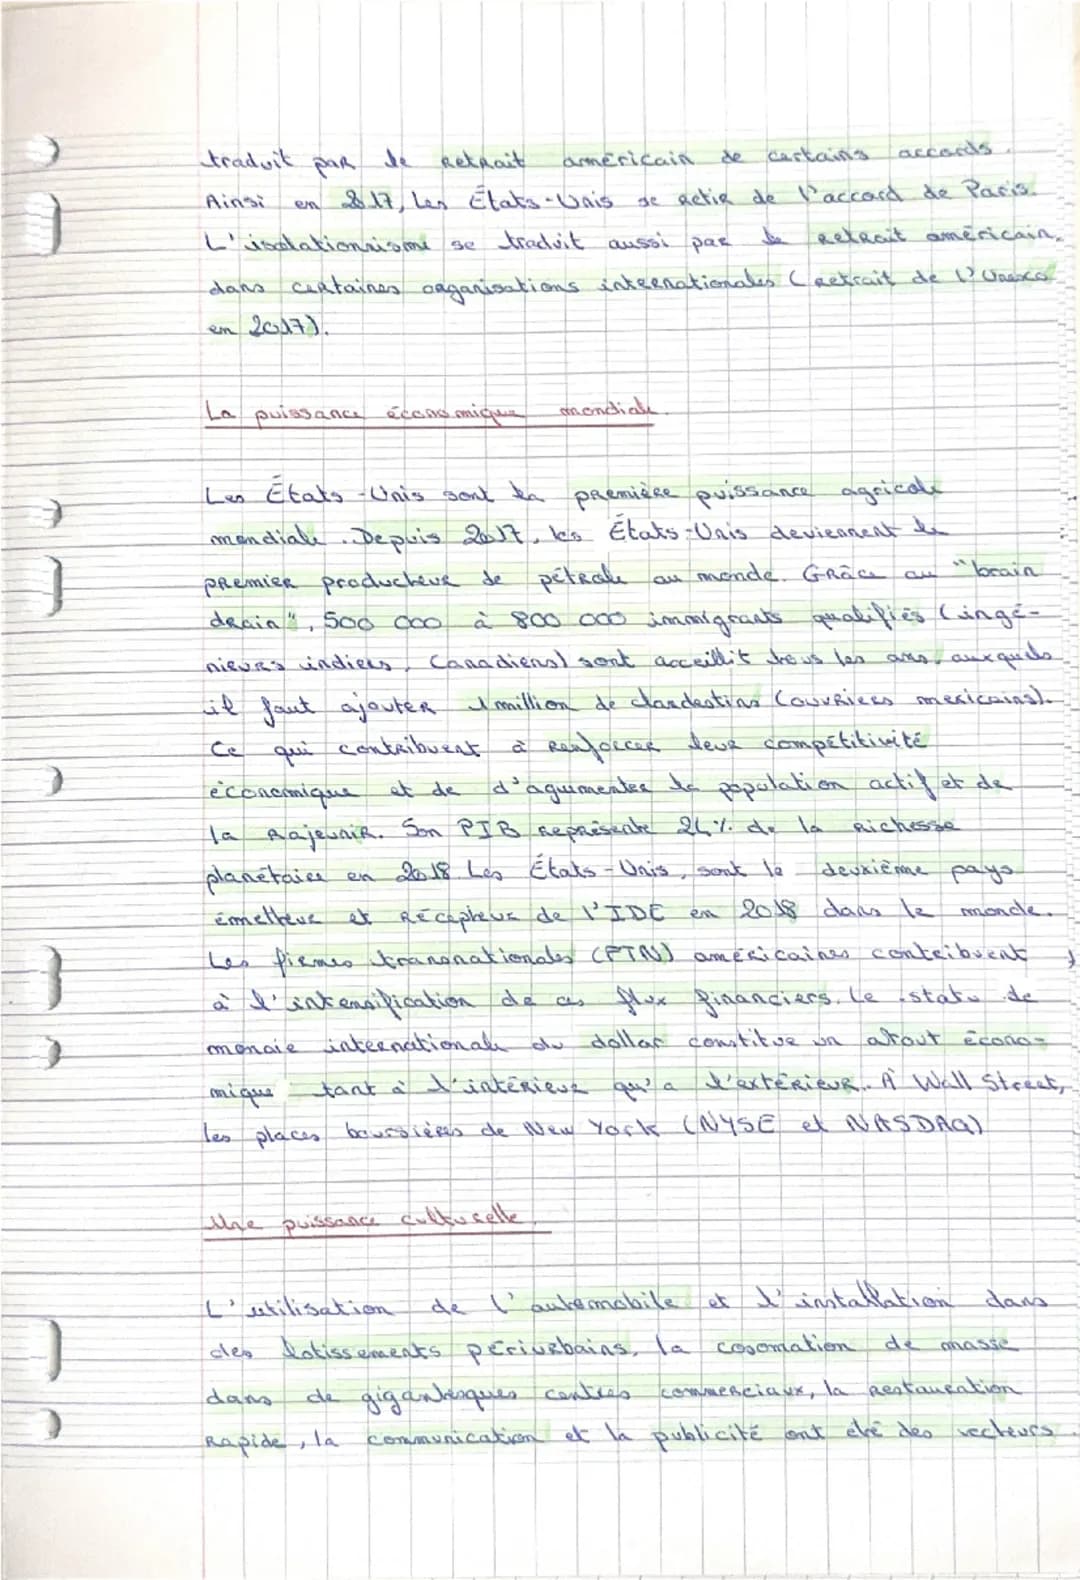 traduit par le retrait américain de certains accords.
Ainsi en 2017, les États-Unis se retir de l'accord de Paris.
L'isolationnisme se traduit aussi par le retrait américain
dans certaines organisations internationales (retrait de l'Unesco
en 2017).
La puissance économique mondiale.
Les États-Unis sont la première puissance agricole
mondiale. Depuis 2017, les États-Unis deviennent le
premier producteur de pétrole au monde. Grâce au "brain
drain", 500 000 à 800 000 immigrants qualifiés (ingé-
nieurs indiens, Canadiens) sont acceillit tous les ans, auxquels
il faut ajouter 1 million de clandestins (ouvriers mexicains).
Ce qui contribuent à renforcer leur compétitivité
économique et de d'agumenter la population actif et de
la rajeunir. Son PIB représente 24% de la richesse
planétaire en 2018. Les États-Unis, sont le deuxième pays
émetteur et récepteur de l'IDE en 2018 dans le monde.
Les firmes transnationales (FTN) américaines contribuent
à l'intensification de ces flux financiers. Le statu de
monaie internationale du dollar constitue un atout écono-
mique tant à l'intérieur qu'a l'extérieur. À Wall Street,
les places boursières de New York (NYSE et NASDAQ)
Une puissance culturelle.
L'utilisation de l'automobile et l'installation dans
des lotissements périurbains, la cosomation de masse
dans de gigantesques centres commerciaux, la restauration
rapide, la communication et la publicité ont été des vecteurs